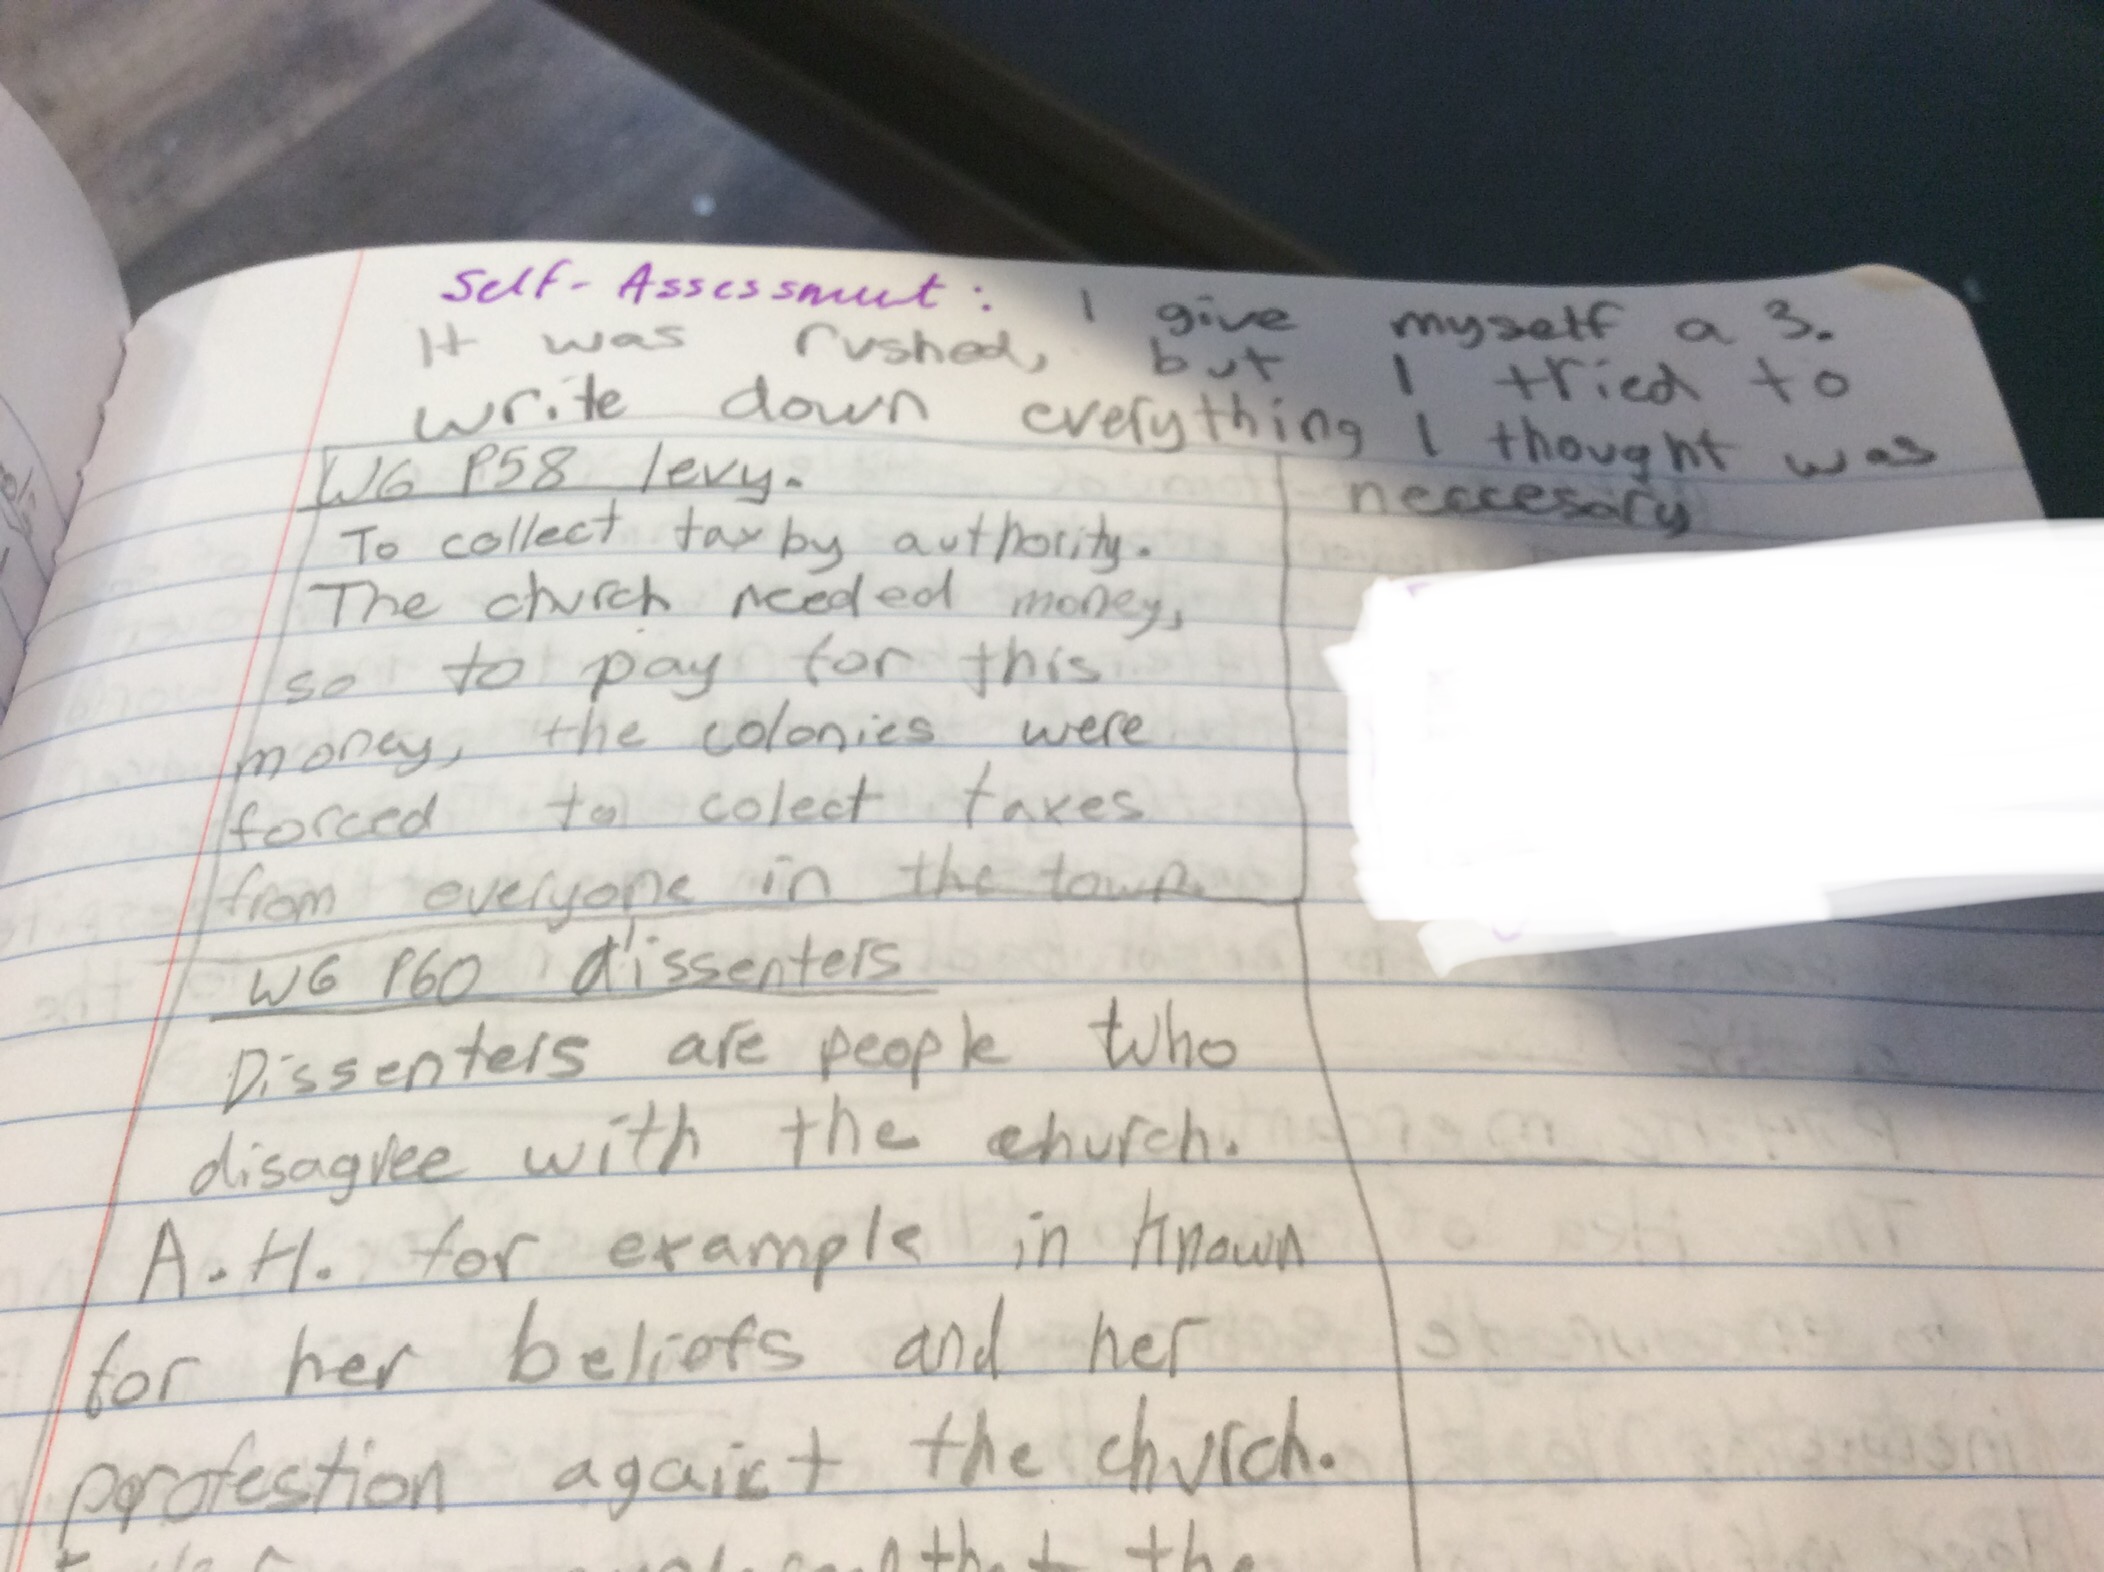 Self-Assessment: I give myself a 3.
It was rushed, but I tried to
write down everything I thought was
neccesary
WG P58 levy.
To collect tax by authority.
The church needed money,
so to pay for this
money, the colonies were
forced to colect taxes
from everyone in the town.
WG P60 dissenters
Dissenters are people who
disagree with the church.
A.H. for example in known
for her beliefs and her
against the church.
that the